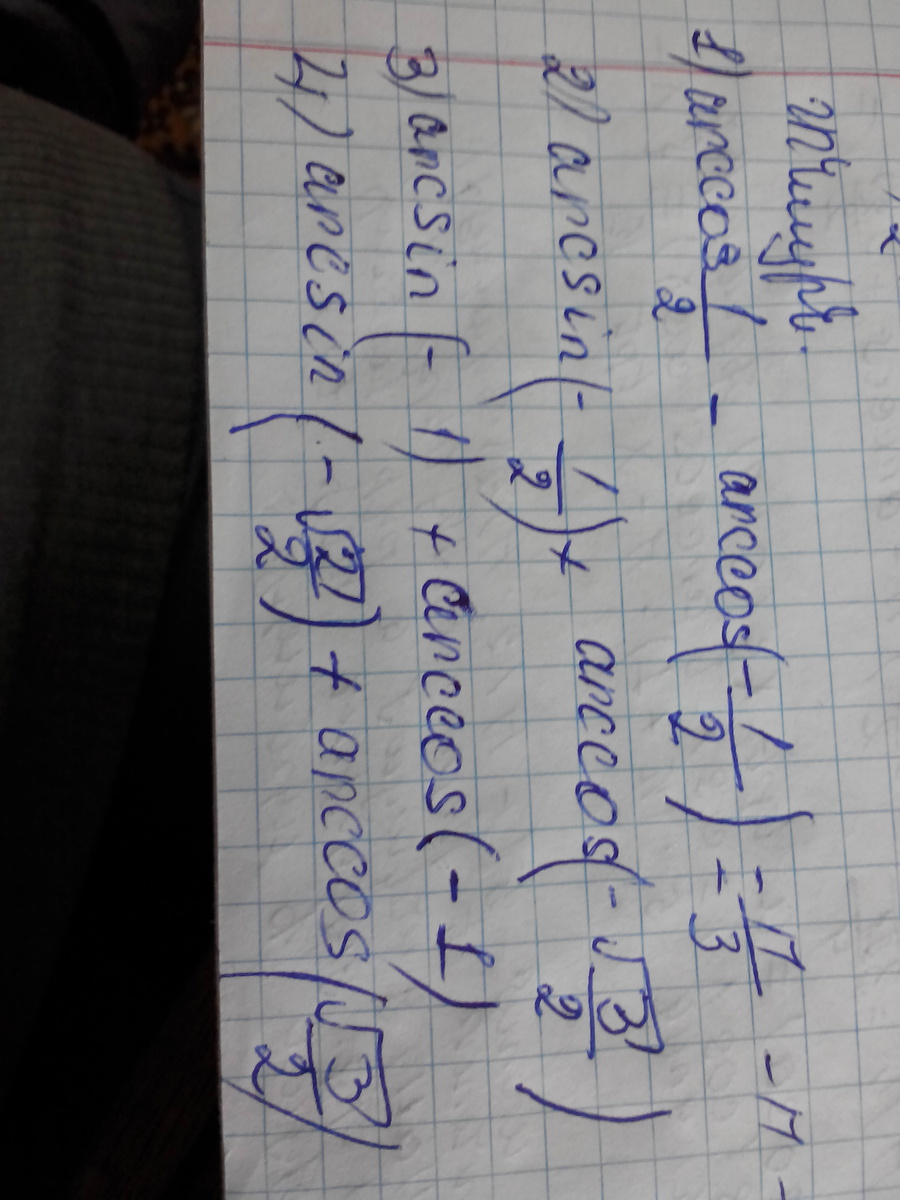 1) arccos 1/2 - arccos(-1/2) = π/3 - π -
2) arcsin(-1/2) + arccos(-√3/2)
3) arcsin(-1) + arccos(-1)
4) arcsin(-√2/2) + arccos(√3/2)